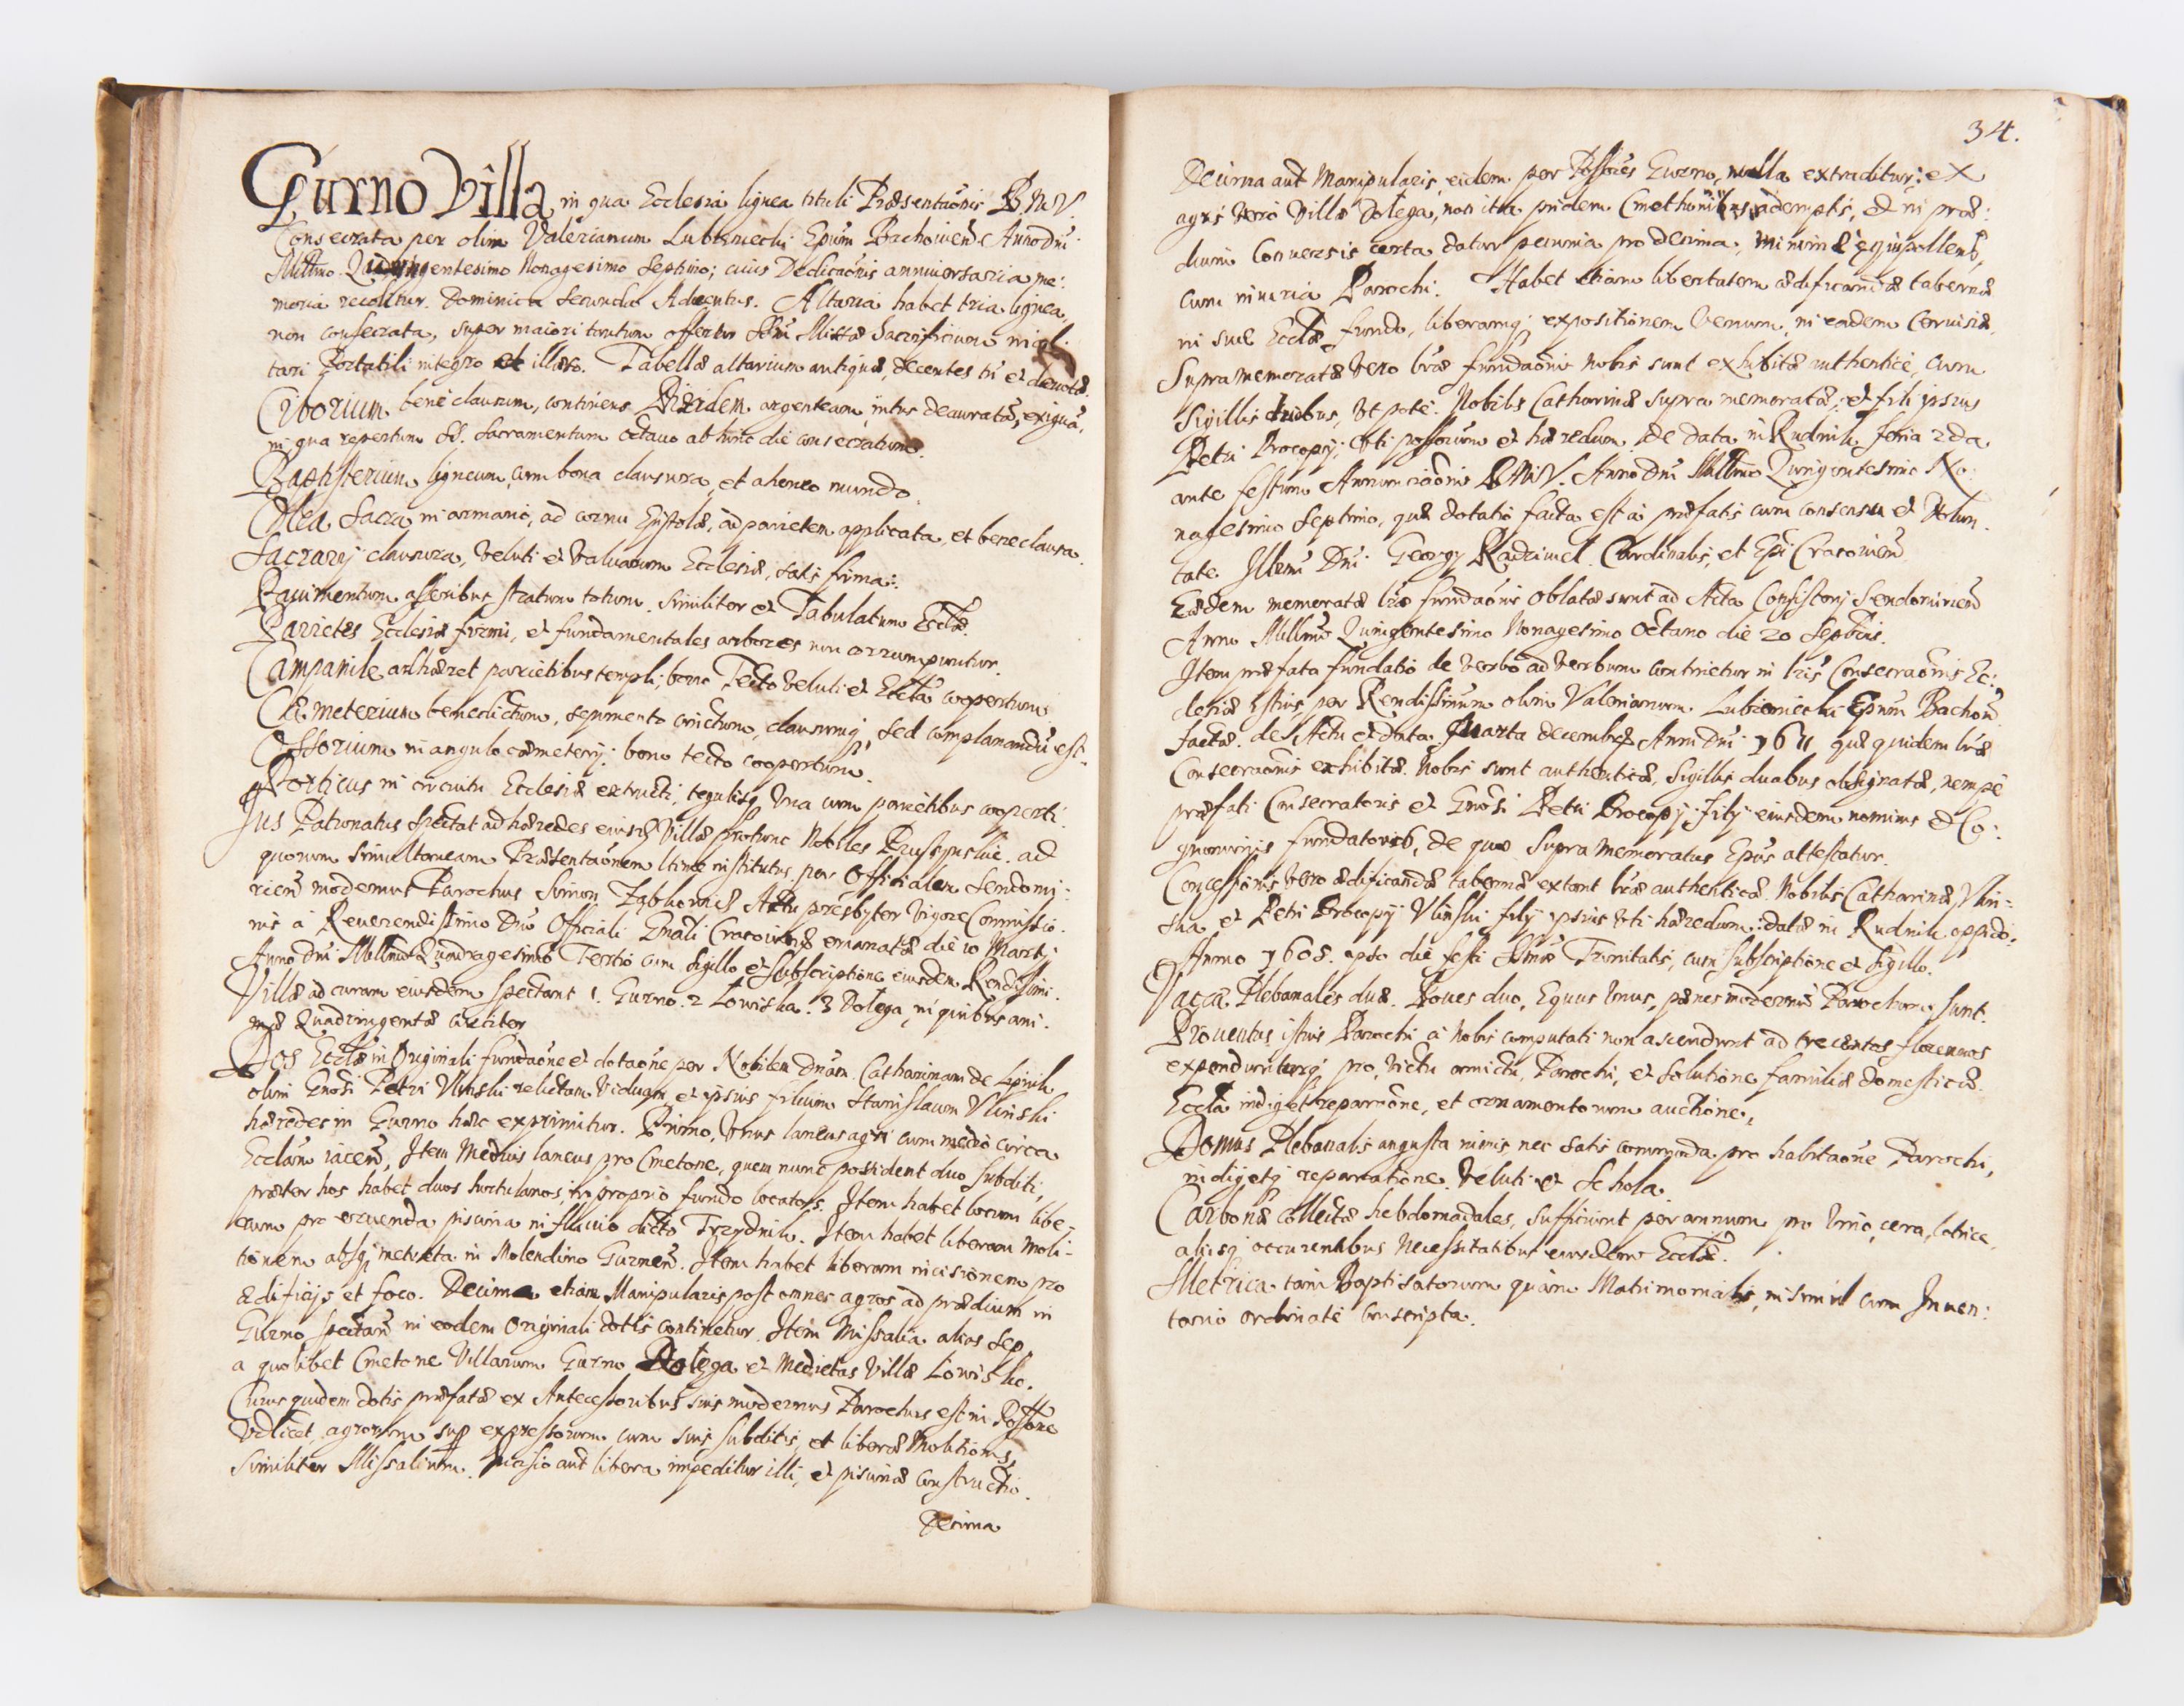 Gurno Villa in qua Ecclesia lignea tituli Præsentaõnis B. M. V.
Consecrata per olim Valerianum Lubieniecki Epũm Bachouien Anno dni
Millmo Quingentesimo Nonagesimo Septimo; cuius Dedicaõnis anniuersaria me:
moria recolitur Dominica Secunda Aduentus. Altaria habet tria lignea,
non consecrata, super maiori tantum offertur Missæ Sacrificium in al:
tari Portatili integro et illæso. Tabellæ altarium antiquæ, decentes tñ et deuotæ.
Ciborium bene clausum, continens Pixidem argenteam intus deauratã, exiguã,
in qua repertum SS. Sacramentum octauo ab hinc die consecratum.
Baptisterium ligneum cum bona clausura, et aheneo mundo.
Olea Sacra in armario, ad cornu Epistolæ, ad parietem applicata, et bene clausa.
Sacrarij clausura, veluti et Valuarum Ecclesiæ, satis firma.
Pauimentum asseribus stratum totum. Similiter et Tabulatum Ecclæ.
Parietes Ecclesiæ firmi, et fundamentales arbores non corrumpuntur.
Campanile adhæret parietibus templi; bono Tecto veluti et Ecclã coopertum.
Cæmeterium benedictum, sepimento cinctum, clausumq, sed complanandũ est.
Ossorium in angulo cæmeterij: bono tecto coopertum.
Porticus in circuitu Ecclesiæ extructi, tegulisq Vna cum parietibus cooperti.
Jus Patronatus Spectat ad hæredes eiusd Villæ protunc Nobiles ad
quorum Simultaneam Præsentaõnem ltime institutus per Officialem Sendomi:
rien modernus Parochus Simon Actu presbyter Vigore Commissio:
nis a Reuerendissimo Dno Officiali Gnali Cracouien emanatæ die 10 Martij
Anno dni Millmo Quadragesimo Tertio cum Sigillo et Subscriptione eiusdem Rendissimi.
Villæ ad curam eiusdem Spectant 1. Gurno. 2 Łowiska. 3 Dołega, in quibus ani:
mæ Quadringentæ circiter
Dos Ecclæ in Originali fundaõne et dotaõne per Nobilem Dnam Catharinam de Lipnik
olim Gnosi Petri Vlinski relictam Viduam, et ipsius filium Stanislaum Vlinski
hæredes in Gurno hæc exprimitur. Primo, Vnus laneus agri cum medio circa
Ecclam iacen, Item Medius laneus pro Cmetone, quem nunc possident duo Subditi,
præter hos habet duos hortulanos in proprio fundo locatos. Item habet locum libe:
rum pro eruenda piscina in fluuio dicto Trzydnik. Item habet liberam moli:
tionem absq metreta in Molendino Gurnen. Item habet liberam incisionem pro
ædificijs et foco. Decima etiam Manipularis post omnes agros ad prædium in
Gurno spectan in eodem Originali dotis continetur. Item Missalia alias Sep
a quolibet Cmetone Villarum Gurno Dołega et Medietas Villæ Łowisko.
Cuius quidem dotis præfatæ ex Antecessoribus suis modernus Parochus est in Possone
Videlicet agrorum sup expressorum cum suis subditis, et liberæ Molitionis,
Similiter Missalium. Incisio aut libera impeditur illi, et piscinæ constructio.
Decima
34.
Decima aut Manipularis, eidem per Possores Gurno, nulla extraditur: ex
agris vero Villæ Dołega, non ita pridem Cmethonibus ademptis, et in præ:
dium Conuersis certa datur pecunia pro decima, minime æquipollens,
cum iniuria Parochi. Habet etiam libertatem ædificandæ tabernæ
in suæ Ecclæ fundo, liberamq expositionem Venum, in eadem Ceruisiæ.
Supra memoratæ vero lræ fundaõnis nobis sunt exhibitæ authenticè, cum
Sigillis duobus, vt pote. Nobilis Catharinæ supra memoratæ, et filij ipsius
Petri Procopij, vti possorum et hæredum, de data in Rudnik feria 2da
ante festum Annunciaõnis B.M.V. Anno Dni Millmo Quingentesimo No:
nagesimo Septimo, quæ dotatio facta est à præfatis cum consensu et Volun:
tate Illmi Dni Georgij Radziwel Cardinalis, et Epi Cracouien
Eædem memoratæ lræ fundaõnis oblatæ sunt ad Acta Consistorij Sendomirien
Anno Millmo Quingentesimo Nonagesimo Octauo die 20 Septbris.
Item præfata fundatio de verbo ad verbum continetur in lris Consecraõnis Ec:
clesiæ istius, per Rendissimum olim Valerianum Lubieniecki Epum Bachou
factæ. de Actu et Data Quarta decembr Anni Dni 1611 quæ quidem lræ
Consecraõnis exhibitæ Nobis sunt authenticæ, Sigillis duabus obsignatæ, nempe
præfati Consecratoris et Gnosi Petri Procopij filij eiusdem nominis et Co:
gnominis fundatoris, de quo Supra memoratus Epus attestatur.
Concessionis vero ædificandæ tabernæ extant lræ authenticæ Nobilis Catharinæ Vlin:
ska et Petri Procopij Vlinski filij ipsius vti hæredum: datæ in Rudnik oppido:
Anno 1608. ipso die festi SSmæ Trinitatis, cum subscriptione et Sigillo.
Vaccæ Plebanales duæ. Boues duo, Equus Vnus, penes modernũ Parochum sunt.
Prouentus istius Parochi à Nobis computati non ascendunt ad trecentos florenos
expendunturq pro victu amictu Parochi, et solutione familiæ domesticæ.
Eccla indiget reparaõne, et ornamentorum auctione,
Domus Plebanalis angusta nimis, nec satis commoda pro habitaõne Parochi,
indigetq reparatione, veluti et Schola.
Carbonæ collectæ hebdomadales, sufficiunt per annum pro Vino, cera, lotrice
alijsq occurentibus Necessitatibus eiusdem Ecclæ.
Metrica tam Baptisatorum quàm Matrimonialis, insimul cum Inuen:
tario ordinate conscripta.